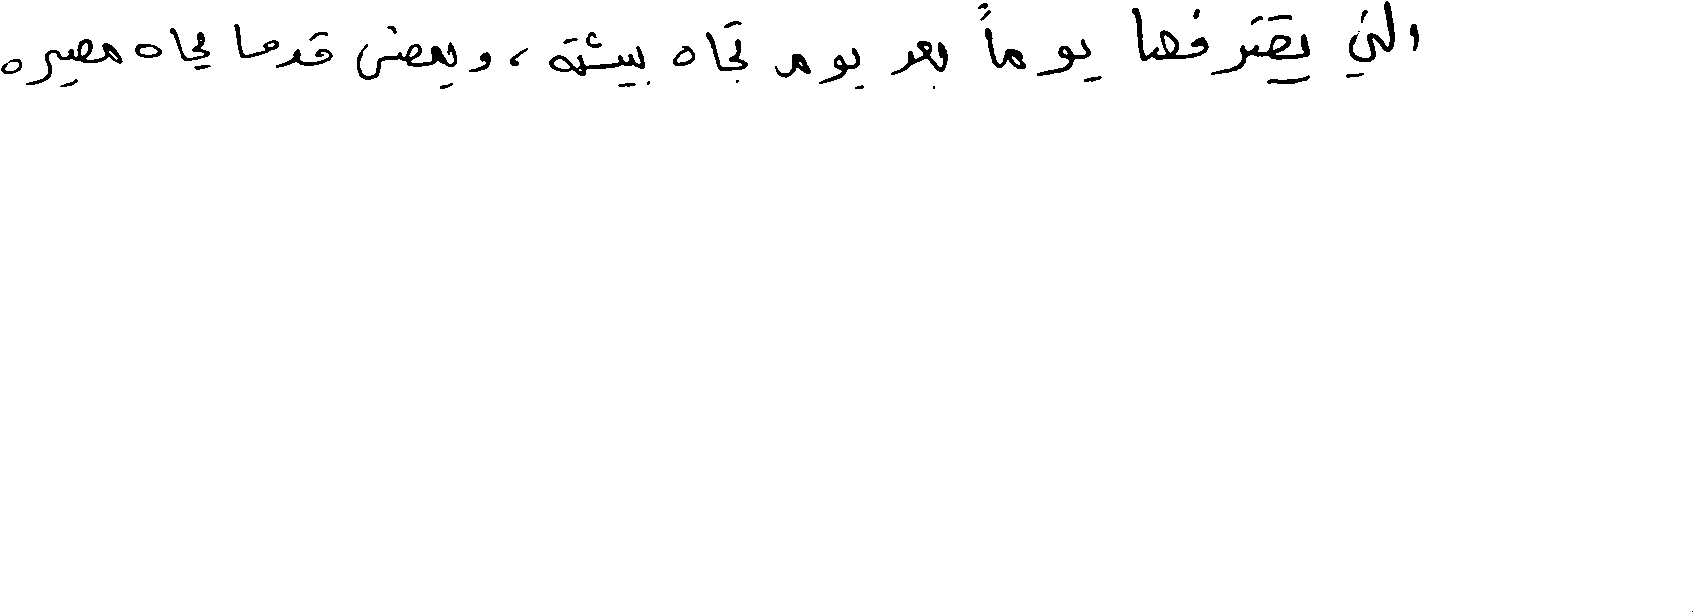 التي يقترفها يوماً بعد يوم تجاه بيئته، ويمضي قدما تجاه مصيره